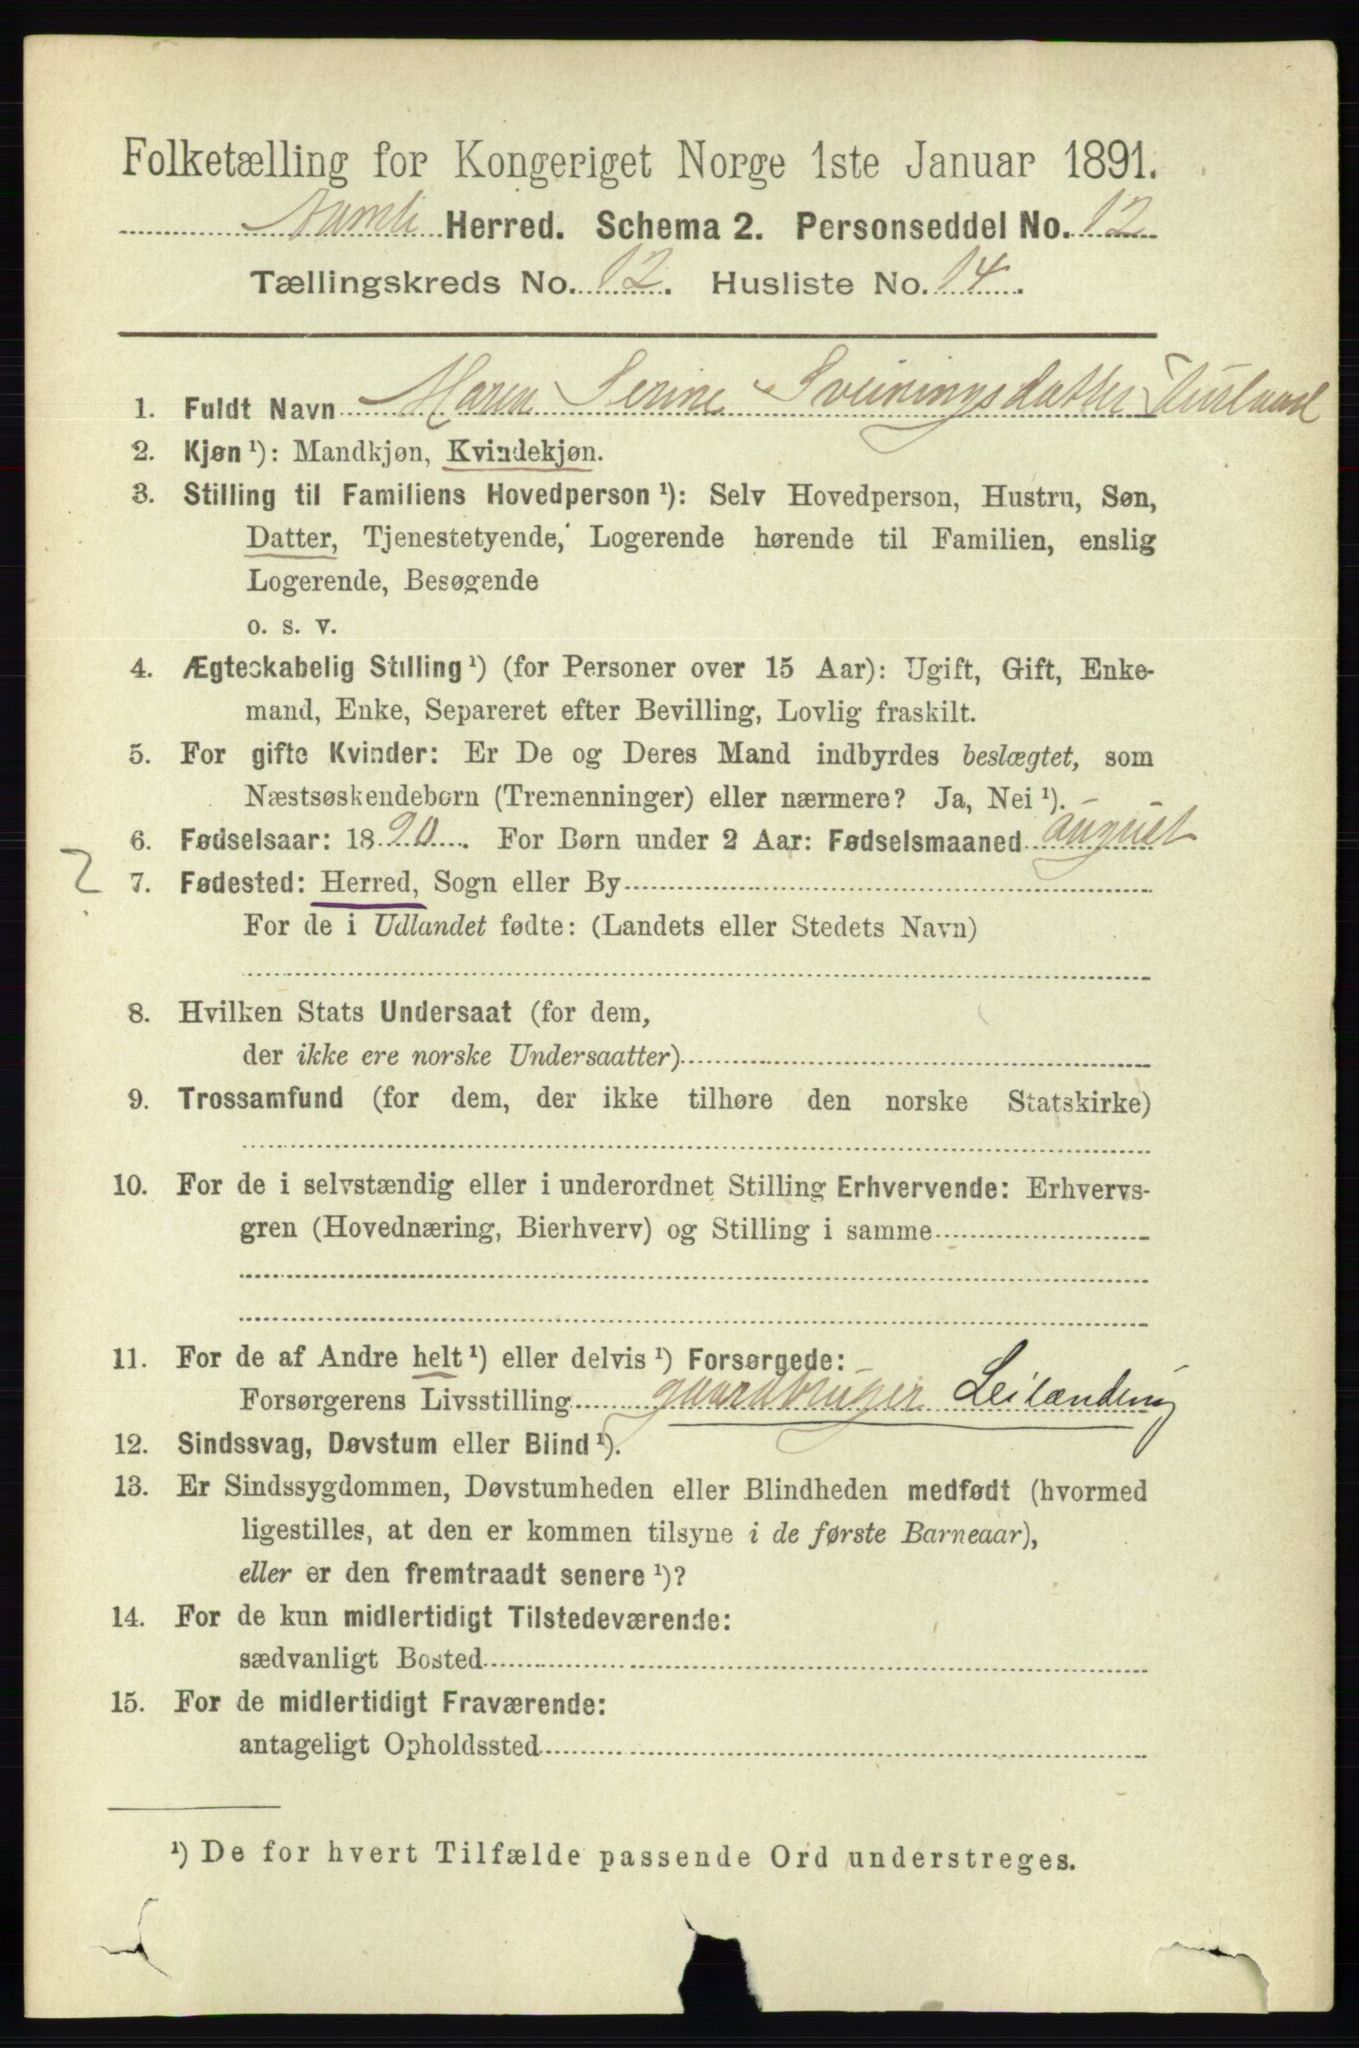 Folketælling for Kongeriget Norge 1ste Januar 1891.
Aamli Herred. Schema 2. Personseddel No. 12
Tællingskreds No. 12. Husliste No. 14.
1. Fuldt Navn Maren Serine Sveiningsdatter
2. Kjøn ¹): Mandkjøn, Kvindekjøn.
3. Stilling til Familiens Hovedperson ¹): Selv Hovedperson, Hustru, Søn,
Datter, Tjenestetyende, Logerende hørende til Familien, enslig
Logerende, Besøgende
o. s. v.
4. Ægteskabelig Stilling ¹) (for Personer over 15 Aar): Ugift, Gift, Enke-
mand, Enke, Separeret efter Bevilling, Lovlig fraskilt.
5. For gifte Kvinder: Er De og Deres Mand indbyrdes beslægtet, som
Næstsøskendebørn (Tremenninger) eller nærmere? Ja, Nei ¹).
6. Fødselsaar: 1890. For Børn under 2 Aar: Fødselsmaaned august
7. Fødested: Herred, Sogn eller By
For de i Udlandet fødte: (Landets eller Stedets Navn)
8. Hvilken Stats Undersaat (for dem,
der ikke ere norske Undersaatter)
9. Trossamfund (for dem, der ikke tilhøre den norske Statskirke)
10. For de i selvstændig eller i underordnet Stilling Erhvervende: Erhvervs-
gren (Hovednæring, Bierhverv) og Stilling i samme
11. For de af Andre helt ¹) eller delvis ¹) Forsørgede:
Forsørgerens Livsstilling gaardbruger Leilænding
12. Sindssvag, Døvstum eller Blind ¹).
13. Er Sindssygdommen, Døvstumheden eller Blindheden medfødt (hvormed
ligestilles, at den er kommen tilsyne i de første Barneaar),
eller er den fremtraadt senere ¹)?
14. For de kun midlertidigt Tilstedeværende:
sædvanligt Bosted
15. For de midlertidigt Fraværende:
antageligt Opholdssted
¹) De for hvert Tilfælde passende Ord understreges.